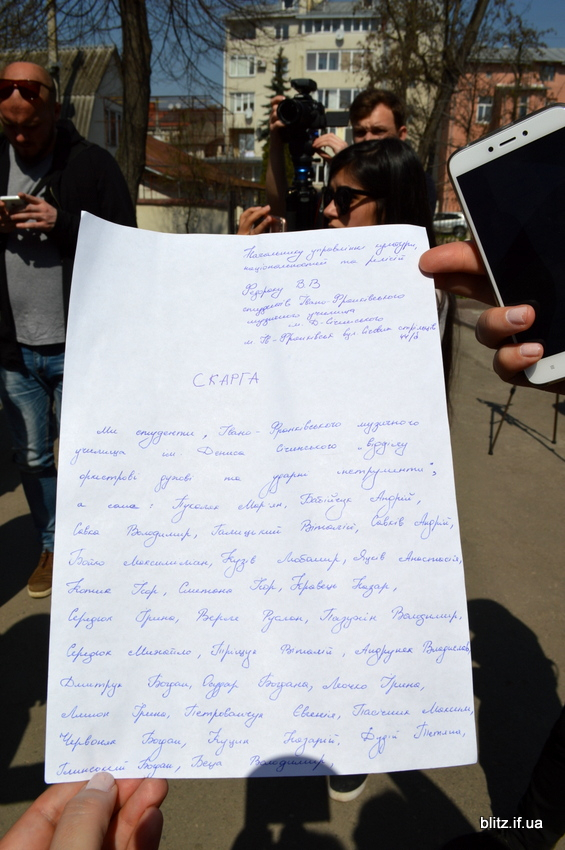 Начальнику управління культури,
національностей та релігій
Федораку В.В
студентів Івано-Франківського
музичного училища
ім Д-Січинського
м. Ів-Франківськ вул. Січових стрільців
44/а
СКАРГА
Ми студенти, Івано-Франківського музичного
училища ім Дениса Січинського "відділу
оркестрові духові та ударні інструменти",
а саме: Мар'ян, Бабійчук Андрій,
Савка Володимир, Галицький Віталій, Савків Андрій,
Бойло Максиміліан, Кузів Любомир, Яцків Анастасія,
Котик Ігор, Сметана Ігор, Кравець Назар,
Середюк Ірина, Верле Руслан, Пазунін Володимир,
Середюк Михайло, Піріщук Віталій, Андрунек Владислав,
Дмитрук Богдан, Бондар Богдана, Лечко Ірина,
Ірина, Петрованчук Євгенія, Пасічник Максим,
Червоняк Богдан, Куцин Назарій, Дудій Тетяна,
Богдан, Беца Володимир,
blitz.if.ua